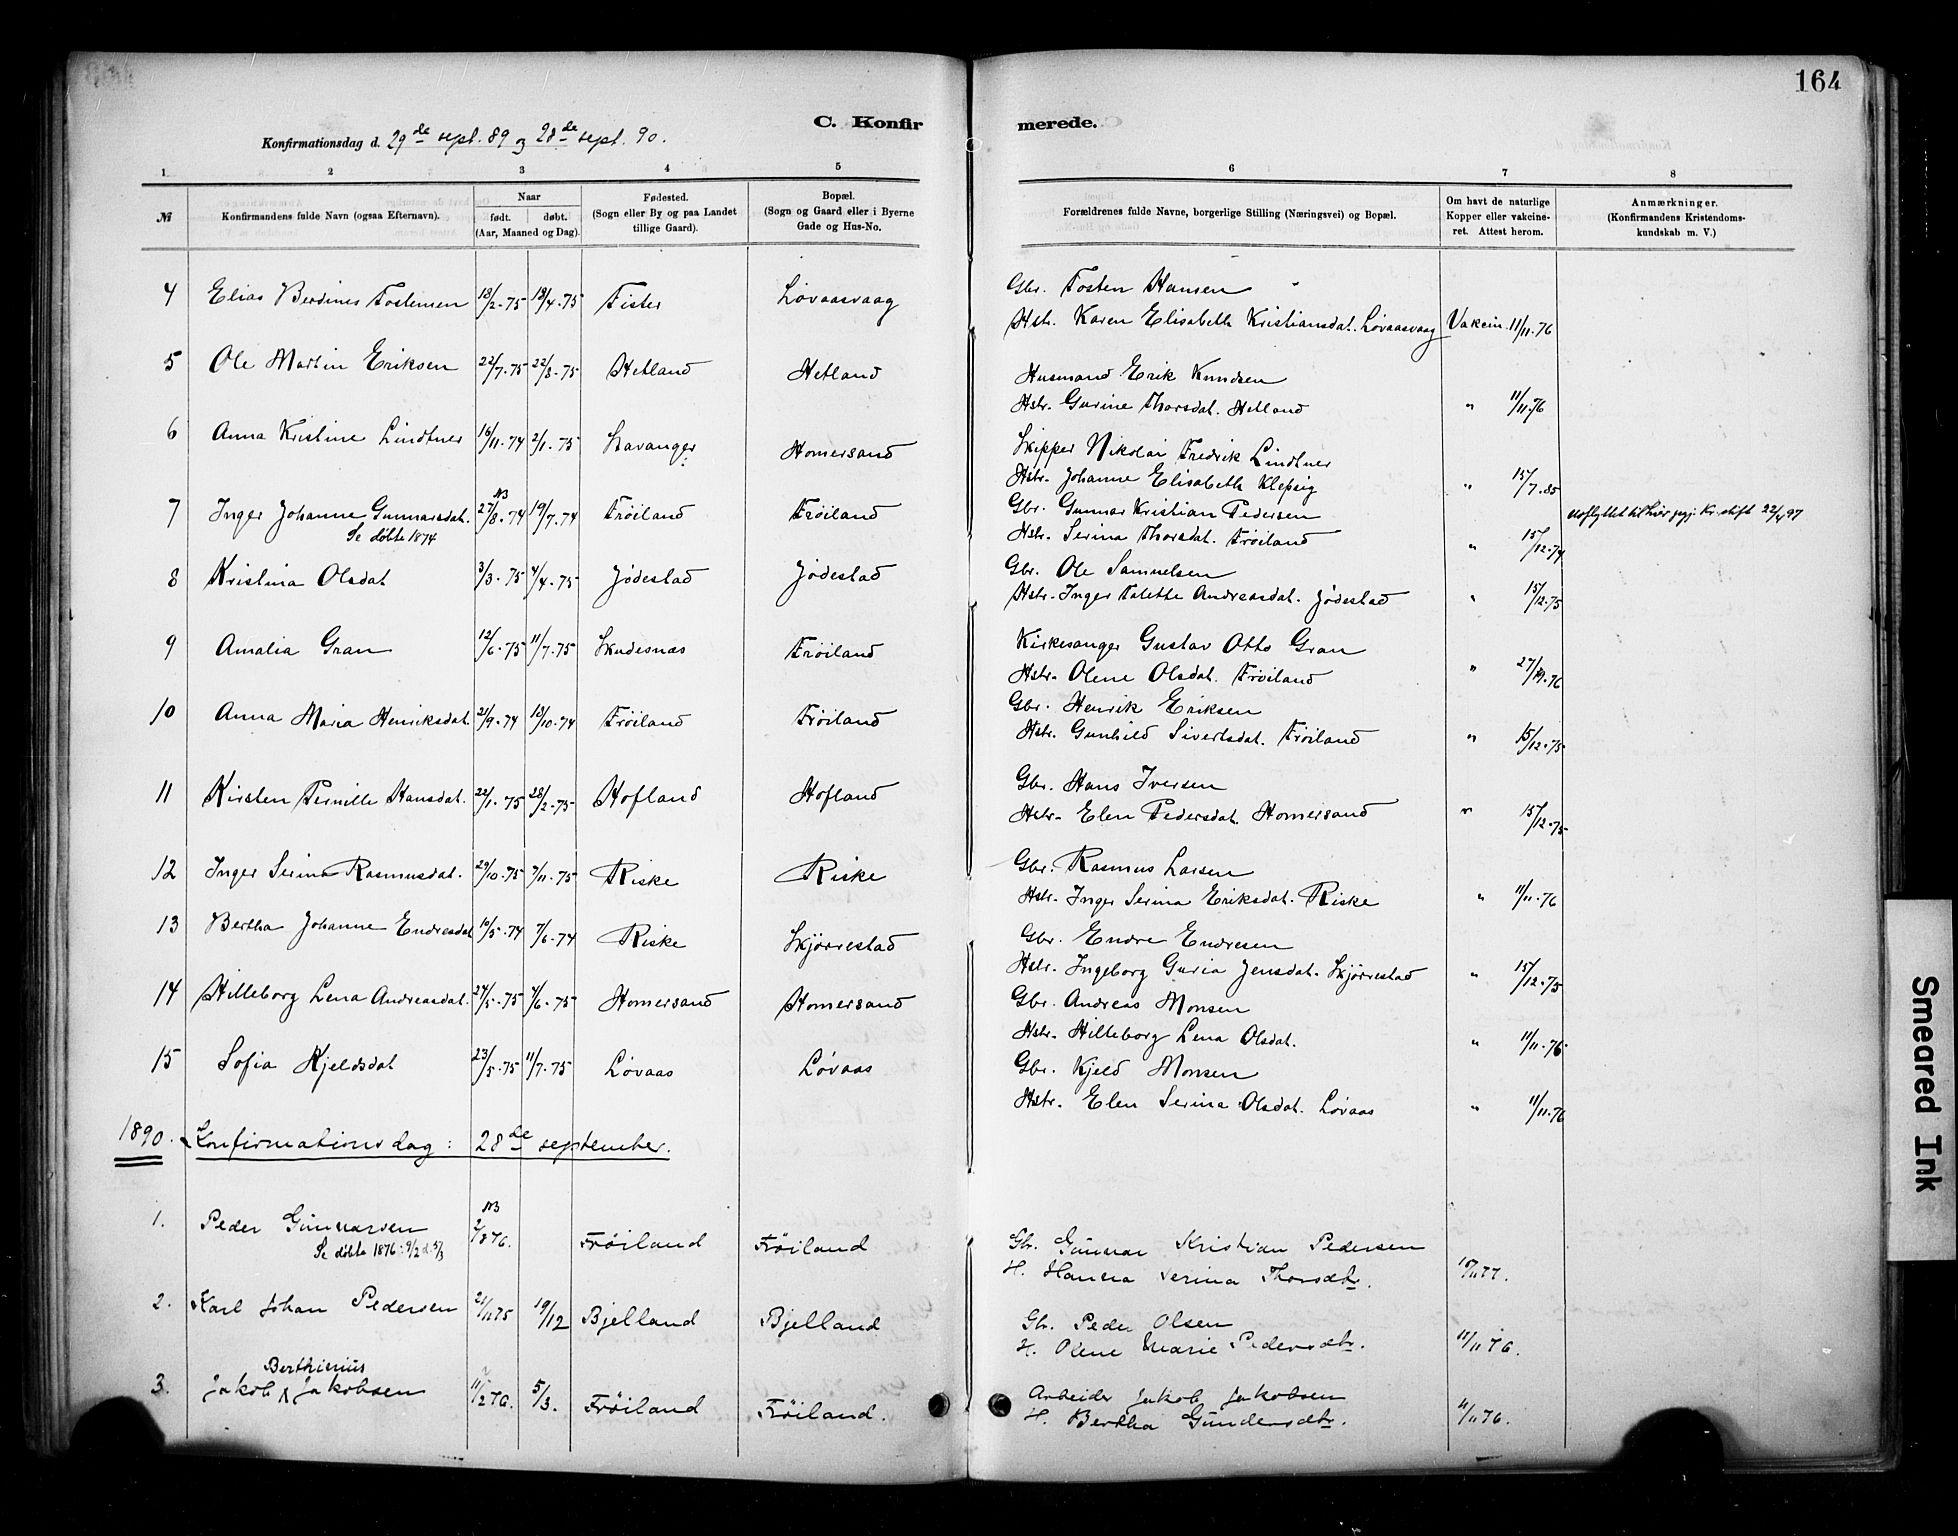 164
C. Konfirmerede.
Konfirmationsdag d. 29de sept. 89 og 28de sept. 90.
1 2 3 4 5 6 7 8
№ Konfirmandens fulde Navn (ogsaa Efternavn). Naar født. døbt. (Aar, Maaned og Dag). Fødested. (Sogn eller By og paa Landet tillige Gaard). Bopæl. (Sogn og Gaard eller i Byerne Gade og Hus-No. Forældrenes fulde Navne, borgerlige Stilling (Næringsvei) og Bopæl. Om havt de naturlige Kopper eller vakcineret. Attest herom. Anmærkninger. (Konfirmandens Kristendomskundskab m. V.)
4 Elias Berdines Tostensen 18/2-75 18/4-75 Fister Løvaasvaag Gbr. Tosten Hansen
Hstr. Karen Elisabeth Kristiansdat. Løvaasvaag Vakcin. 11/11-76
5 Ole Martin Eriksen 22/7-75 22/8-75 Hetland Hetland Husmand Erik Knudsen
Hstr. Gurine Thorsdat. Hetland " 11/11-76
6 Anna Kristine Lindtner 16/11-74 2/1-75 Stavanger Homersand Skipper Nikolai Fredrik Lindtner
Hstr. Johanne Elisabeth Klepsig " 15/7-85
7 Inger Johanne Gunnarsdat. NB 27/8-74 19/7-74 Frøiland Frøiland Gbr. Gunnar Kristian Pedersen
Se døbte 1874 Hstr. Serina Thorsdat. Frøiland " 15/12-74
8 Kristina Olsdat 3/3-75 4/4-75 Jødestad Jødestad Gbr. Ole Samuelsen
Hstr. Inger Talette Andreasdat. Jødestad " 15/12-75
9 Amalia Gran 12/6-75 11/7-75 Skudesnæs Frøiland Kirkesanger Gustav Otto Gran
Hstr. Olene Olsdat. Frøiland "
10 Anna Maria Henriksdat. 21/9-74 18/10-74 Frøiland Frøiland Gbr. Henrik Eriksen
Hstr. Gunhild Sivertsdat. Frøiland " 15/12-75
11 Kirsten Pernille Hansdat. 22/1-75 28/2-75 Hofland Hofland Gbr. Hans Iversen
Hstr. Elen Pedersdat. Homersand " 15/12-75
12 Inger Serina Rasmusdat. 29/10-75 7/11-75 Riske Riske Gbr. Rasmus Larsen
Hstr. Inger Serina Eriksdat. Riske " 11/11-76
13 Bertha Johanne Endresdat 10/5-74 7/6-74 Riske Skjørrestad Gbr. Endre Endresen
Hstr. Ingeborg Guria Jensdat. Skjørrestad " 15/12-75
14 Hilleborg Lena Andreasdat. 24/5-75 4/6-75 Homersand Homersand Gbr. Andreas Monsen
Hstr. Hilleborg Lena Olsdat. " 11/11-76
15 Sofia Kjeldsdat 23/5-75 11/7-75 Løvaas Løvaas Gbr. Kjeld Monsen
Hstr. Elen Serina Olsdat. Løvaas " 11/11-76
1890. Konfirmationsdag: 28de september.
1. Peder Gunnarsen NB 2/876. Frøiland Frøiland Gbr. Gunnar Kristian Pedersen
Se døbte 1876: 9/2 H. Hanna Serina Thorsdtr.
2. Karl Johan Pedersen 21/1175 19/12 Bjelland Bjelland Gbr. Peder Olsen
H. Olene Marie Pedersdtr. 11/1176.
Berthinius
3. Jakob Jakobsen 11/276. 5/3. Frøiland Frøiland. Arbeider Jakob Jakobsen
H. Bertha Gundersdtr. 11/1176.
Smeared Ink